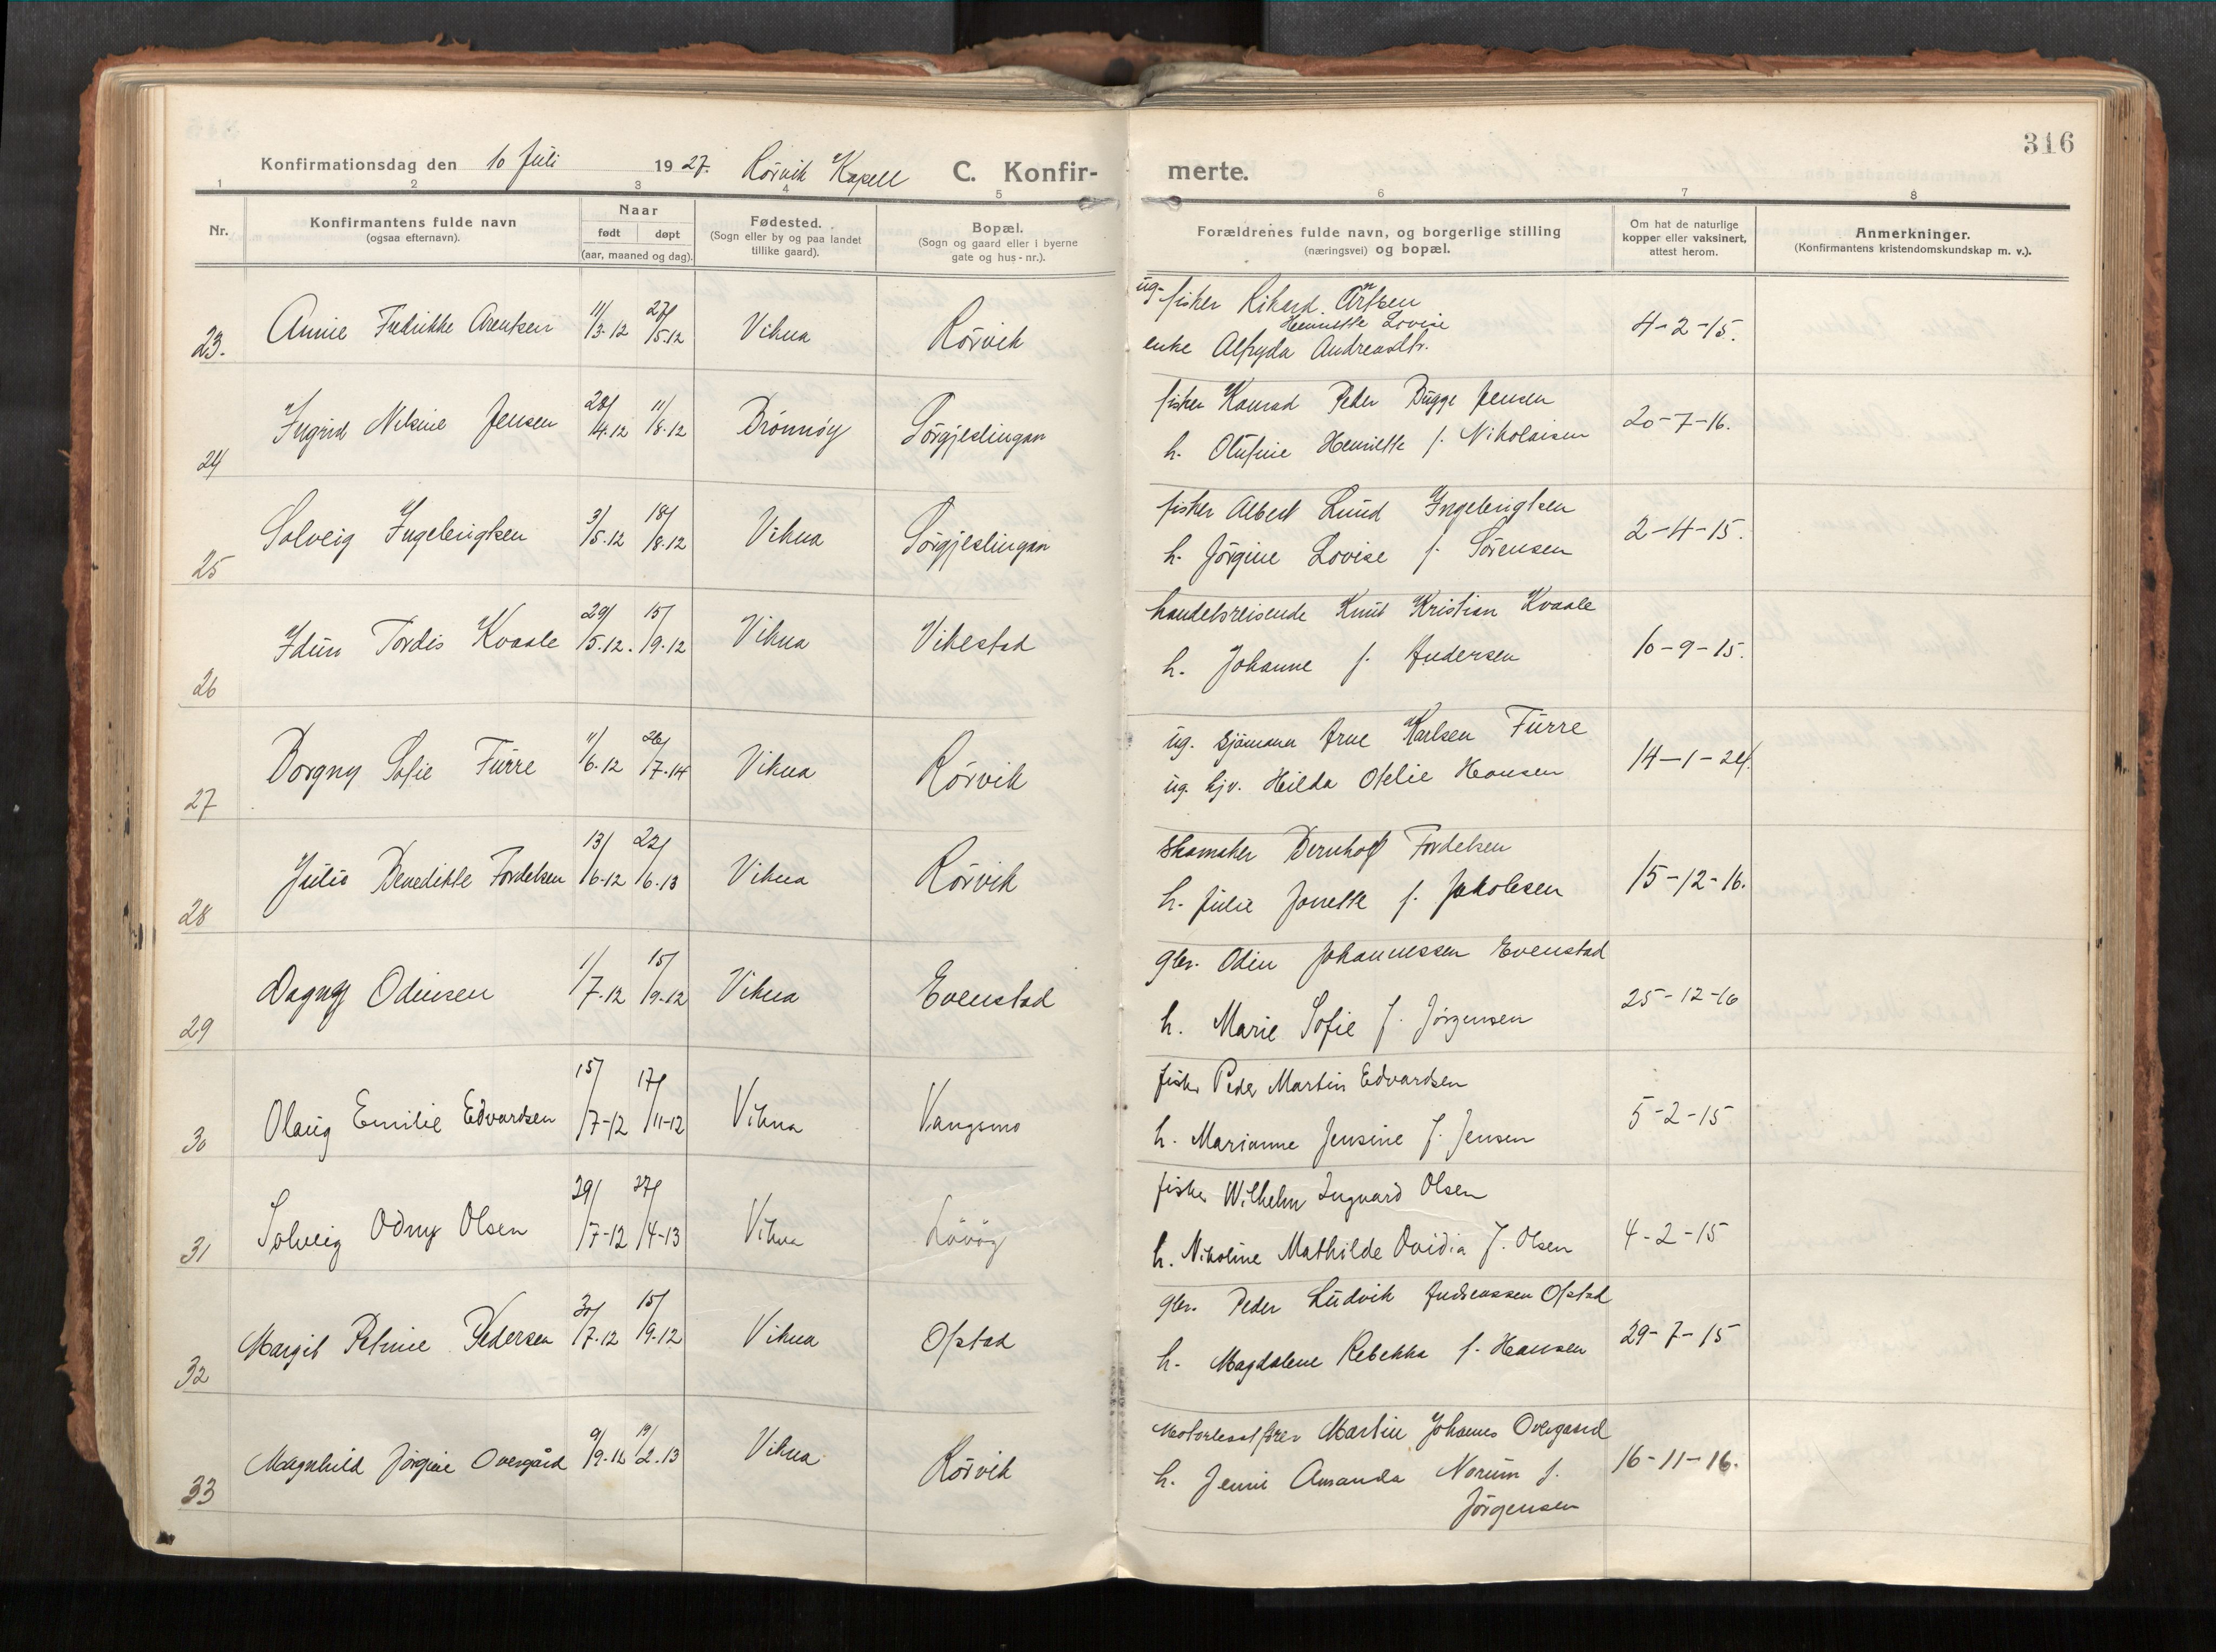 316
Konfirmationsdag den 10 Juli 1927. Rörvik Kapell C. Konfir-merte.
1 2 3 4 5 6 7 8
Nr.
Konfirmantens fulde navn
(ogsaa efternavn).
Naar
født døpt
(aar, maaned og dag).
Fødested.
(Sogn eller by og paa landet
tillike gaard).
Bopæl.
(Sogn og gaard eller i byerne
gate og hus-nr.).
Forældrenes fulde navn, og borgerlige stilling
(næringsvei) og bopæl.
Om hat de naturlige
kopper eller vaksinert,
attest herom.
Anmerkninger.
(Konfirmantens kristendomskundskap m. v.).
23. Annie Fredrikke Arentsen 11/3-12 27/5.12 Vikna Rörvik
ug. fisker Rikard Arntsen
Henriette Lovise
enke Alfryda Andreasdtr.
4-2-15.
24 Ingrid Nilsine Jensen 20/4.12 11/8.12 Brönnöy Sörgjeslingan
fisker Konrad Peder Bugge Jensen
h. Olufine Henriette f. Nikolaisen
20-7-16.
25 Solveig Ingebrigtsen 3/5.12 18/8.12 Vikna Sörgjeslingan
fisker Albert Lund Ingebrigtsen
h. Jörgine Lovise f. Sörensen
2-4-15.
26 Idun Tordis Kvaale 29/5.12. 15/9.12 Vikna Vikestad
handelsreisende Knut Kristian Kvaale
h. Johanne f. Andersen
10-9-15.
27 Borgny Sofie Furre 11/6.12 26/7.14 Vikna Rörvik
ug. sjömann Arne Karlsen Furre
ug. tjv. Hilda Otelie Hansen
14-1-24.
28 Julie Benedikte Fordelsen 13/6-12 22/6.13 Vikna Rörvik
skomaker Bernhof Fordelsen
h. Julie Jonette f. Jakobsen
15-12-16.
29 Dagny Odinsen 1/7.12 15/9-12 Vikna Evenstad
gbr. Odin Johannessen Evenstad
h. Marie Sofie f. Jörgensen
25-12-16
30 Olaug Emilie Edvardsen 15/7-12 17/11-12 Vikna Vangsmo
fisker Peder Martin Edvardsen
h. Marianne Jensine f. Jensen
5-2-15
31 Solveig Odny Olsen 29/7-12 27/4-13 Vikna Lövöy
fisker Wilhelm Ingvard Olsen
h. Nikoline Mathilde Ovidia f. Olsen
4-2-15
32 Margit Petrine Pedersen 30/7.12 15/9.12 Vikna Ofstad
gbr. Peder Ludvik Andreassen Ofstad
h. Magdalene Rebekka f. Hansen
29-7-15
33 Magnhild Jörgine Overgård 9/9.12 19/2.13 Vikna Rörvik
Motorbaatfører Martin Johannes Overgaard
h. Jenni Amanda Norum f.
Jörgensen
16-11-16.